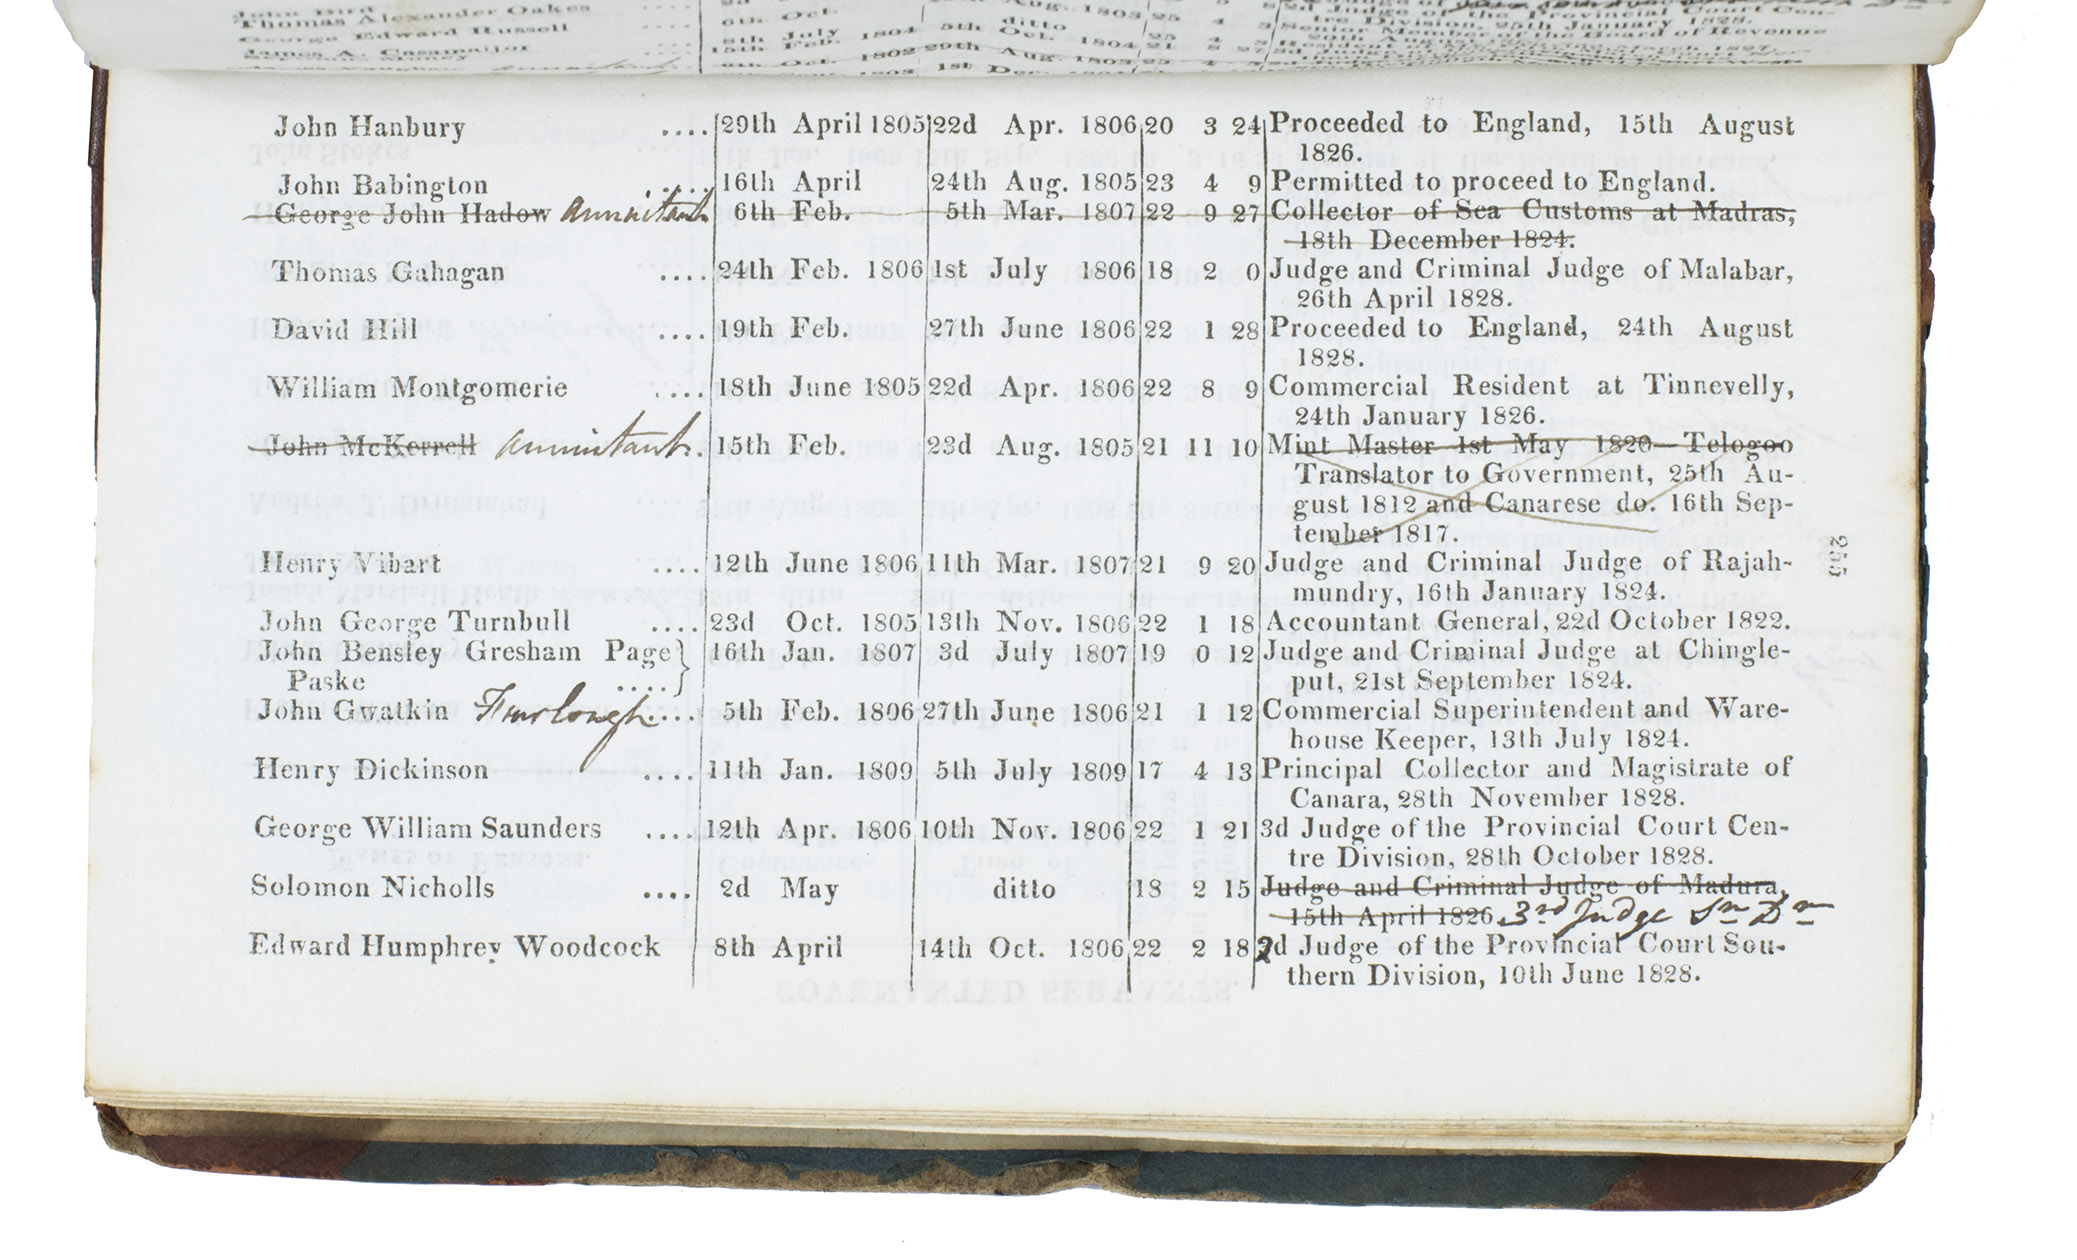 Thomas Alexander Oakes
George Edward Russell
James A. Casamaijor
6th Oct.
8th July 1804 5th
15th Feb.
ditto
Oct. 1804
tre Division, 25th January 1828.
Senior Member of the Board of Revenue
John Hanbury .... 29th April 1805 22d Apr. 1806 20 3 24 Proceeded to England, 15th August
1826.
John Babington .... 16th April 24th Aug. 1805 23 4 9 Permitted to proceed to England.
George John Hadow annuitant 6th Feb. 5th Mar. 1807 22 9 27 Collector of Sea Customs at Madras,
18th December 1824.
Thomas Gahagan .... 24th Feb. 1806 1st July 1806 18 2 0 Judge and Criminal Judge of Malabar,
26th April 1828.
David Hill .... 19th Feb. 27th June 1806 22 1 28 Proceeded to England, 24th August
1828.
William Montgomerie .... 18th June 1805 22d Apr. 1806 22 8 9 Commercial Resident at Tinnevelly,
24th January 1826.
John McKerrell annuitant. 15th Feb. 23d Aug. 1805 21 11 10 Mint Master 1st May 1820—Telogoo
Translator to Government, 25th Au-
gust 1812 and Canarese do. 16th Sep-
tember 1817.
Henry Vibart .... 12th June 1806 11th Mar. 1807 21 9 20 Judge and Criminal Judge of Rajah-
mundry, 16th January 1824.
John George Turnbull .... 23d Oct. 1805 13th Nov. 1806 22 1 18 Accountant General, 22d October 1822.
John Bensley Gresham Page } 16th Jan. 1807 3d July 1807 19 0 12 Judge and Criminal Judge at Chingle-
Paske .... put, 21st September 1824.
John Gwatkin Furlough ... 5th Feb. 1806 27th June 1806 21 1 12 Commercial Superintendent and Ware-
house Keeper, 13th July 1824.
Henry Dickinson .... 11th Jan. 1809 5th July 1809 17 4 13 Principal Collector and Magistrate of
Canara, 28th November 1828.
George William Saunders .... 12th Apr. 1806 10th Nov. 1806 22 1 21 3d Judge of the Provincial Court Cen-
tre Division, 28th October 1828.
Solomon Nicholls .... 2d May ditto 18 2 15 Judge and Criminal Judge of Madura,
15th April 1826. 3rd Judge Sn Dn
Edward Humphrey Woodcock 8th April 14th Oct. 1806 22 2 18 2d Judge of the Provincial Court Sou-
thern Division, 10th June 1828.
255